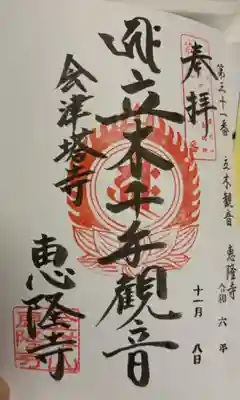 奉拝
第三十一番 立木観音 恵隆寺
令和 六 年
十一月 八日
立木千手観音
会津塔寺
恵隆寺